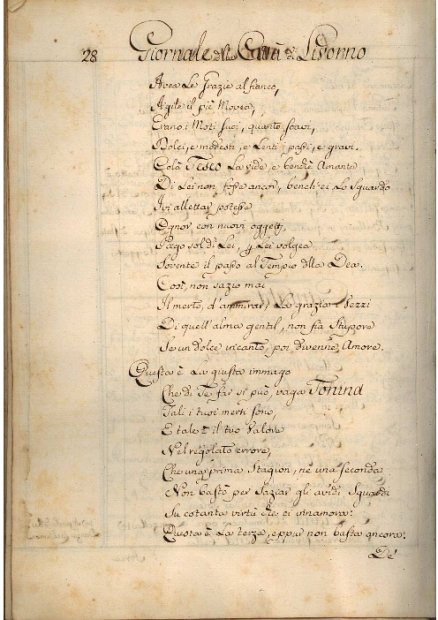 28 Giornale di Città di Livorno
Avea le Grazie al fianco,
Agile il piè Movea,
Erano i Moti suoi, quanto soavi,
Dolci, e modesti, e Lenti i passi, e gravi.
Colà Teseo La vide, e bendiè Amante
Di Lei non fosse ancor, benchè ei Lo Sguardo
Ivi allettar potesse
Ognor con nuovi oggetti,
Pago sol di Lei, volgea
Sovente il passo al Tempio della Dea.
Così, non sazio mai
Il merto, d'ammirar, La grazia, i Vezzi
Di quell'alma gentil, non fia Stupore
Se un dolce incanto, poi divenne, Amore.
Questa è La giusta immago
Che di Te far si può, vaga Tonina
Tali i tuoi merti sono,
E tale è il tuo Valore
Nel regolato errore,
Che una prima Stagion, nè una Seconda
Non bastò per Saziar gli avidi Sguardi
Su cotanta virtù che ci innamora:
Questa è La terza, eppur non basta ancora:
De'